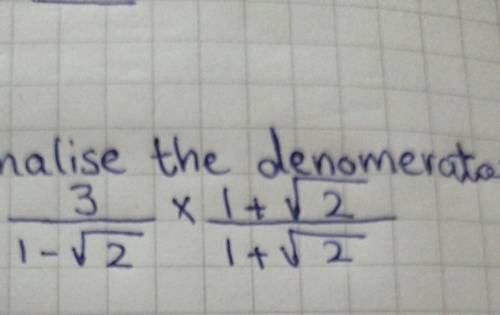 nalise the denomerato
3/(1-√2) × (1+√2)/(1+√2)